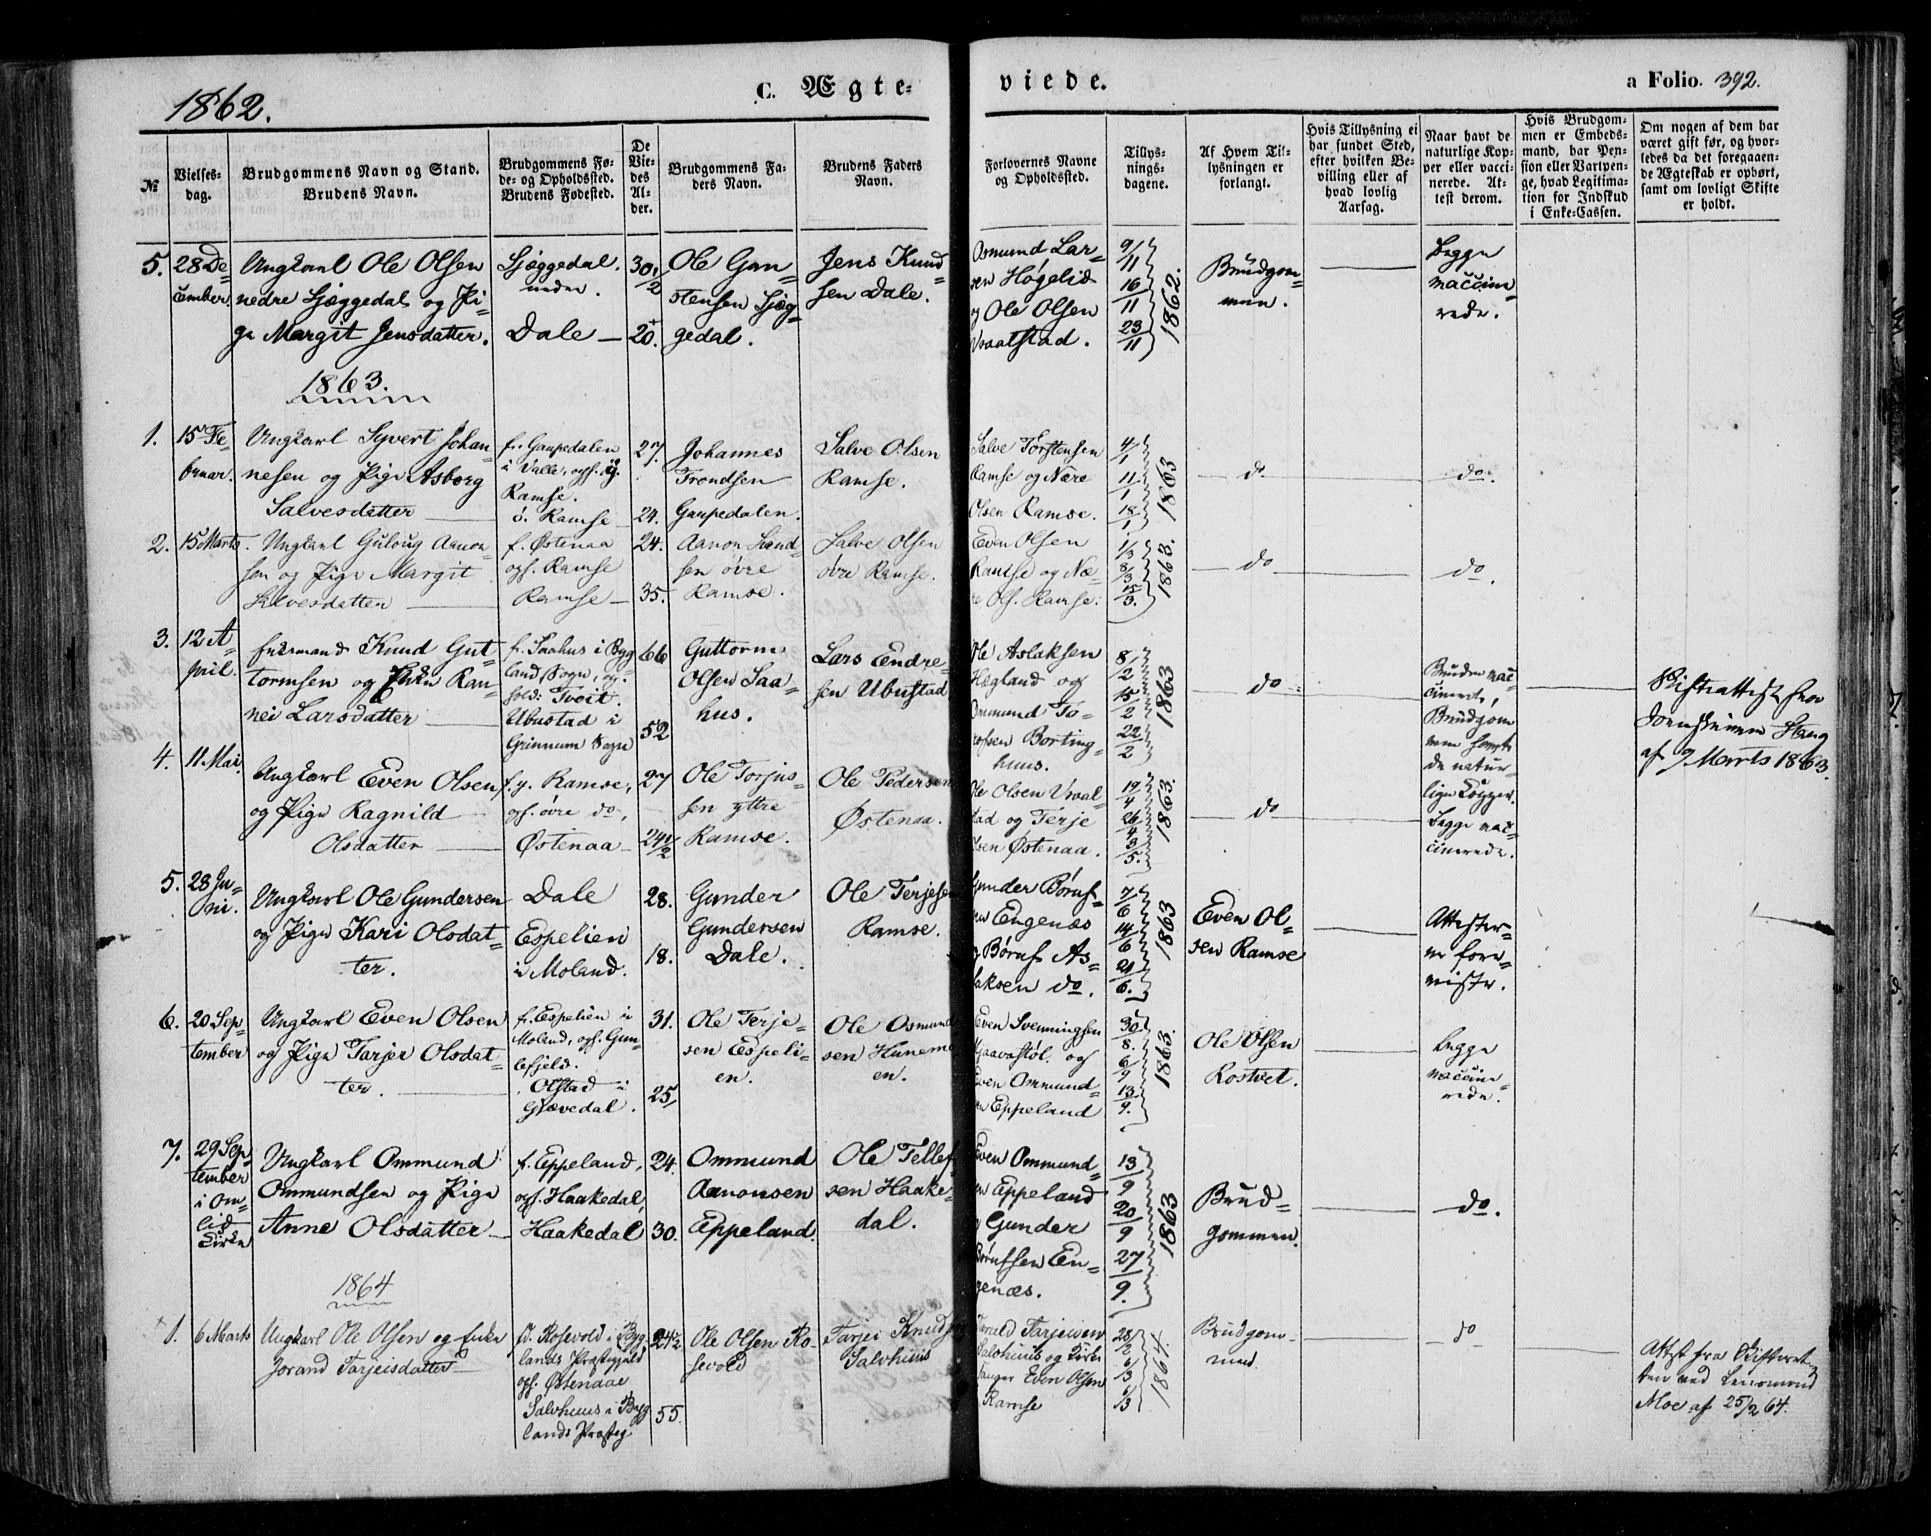 1862.
C. Ægte-
viede.
a Folio. 392.
№
Vielses-
dag.
Brudgommens Navn og Stand.
Brudens Navn.
Brudgommens Fø-
de- og Opholdssted.
Brudens Fødested.
De
Vie-
des
Al-
der.
Brudgommens Fa-
ders Navn.
Brudens Faders
Navn.
Forlovernes Navne
og Opholdssted.
Tillys-
nings-
dagene.
Af Hvem Til-
lysningen er
forlangt.
Hvis Tillysning ei
har fundet Sted,
efter hvilken Be-
villing eller af
hvad lovlig
Aarsag.
Naar havt de
naturlige Kop-
per eller vacci-
nerede. At-
test derom.
Hvis Brudgom-
men er Embeds-
mand, har Pen-
sion eller Vartpen-
ge, hvad Legitima-
tion for Indskud
i Enke-Cassen.
Om nogen af dem har
været gift før, og hvor-
ledes da det foregaaen-
de Ægteskab er ophørt,
samt om lovligt Skifte
er holdt.
5.
28 De-
cember
Ungkarl Ole Olsen
nedre Sjæggedal og Pi-
ge Margit Jensdatter.
Sjæggedal
nedre.
Dale
30 1/2
20.
Ole Gun-
stensen Sjæg-
gedal.
Jens Knud-
sen Dale.
Osmund Lar-
sen Høgelid
og Ole Olsen
Vraalstad.
9/11
16/11
23/11
1862.
Brudgom-
men.
Begge
vaccine-
rede.
1863.
1.
15 Fe
bruar.
Ungkarl Syvert Johan-
nesen og Pige Asborg
Salvesdatter
f. Gaupedalen
i Valle, oph. yt.
Ramse.
ø. Ramse
27.
24.
Johannes
Trondsen
Gaupedalen.
Salve Olsen
Ramse.
Salve Torstensen
Ramse og Nære
Olsen Ramse.
4/1
11/1
18/1
1863
do
do.
2.
15 Marts.
Ungkarl Guloug Aanon-
sen og Pige Margit
Salvesdatter
f. Østenaa
oph. Ramse
Ramse
24.
35.
Aanon
sen øvre
Ramse.
Salve Olsen
øvre Ramse.
Even Olsen
Ramse og Næ-
re Ols. Ramse.
1/3
8/3
15/3.
1863.
do
do.
3.
12 A-
pril.
Enkemand Knud Gut-
tormsen og Enke Ran-
nei Larsdatter
f. Saahus i Byg
land Sogn, op-
hold: Tveit.
Ubustad i
Grinnum Sogn
66
52
Guttorm
Olsen Saa-
hus.
Lars Endre-
sen Ubustad
Ole Aslaksen
Hegland og
Ommund To-
rofsen Borting-
huus.
8/2
15/2
22/2
1863
do
Bruden vac-
cineret,
Brudgom
men havt
de natur-
lige Kopper.
Skifteattest fra
Lensmann Haug
af 9 Marts 1863.
4.
11 Mai.
Ungkarl Even Olsen
og Pige Ragnild
Olsdatter
f. y. Ramse,
oph. øvre do,
Østenaa
27
24 1/2
Ole Torjus-
sen yttre
Ramse.
Ole Pedersen
Østenaa.
Ole Olsen Vraal-
stad og Terje
Olsen Østenaa.
19/4
26/4
3/5.
1863.
do
Begge vac-
cinerede.
5.
28 Ju-
ni.
Ungkarl Ole Gundersen
og Pige Kari Olsdat-
ter.
Dale
Espelien
i Moland.
28.
18.
Gunder
Gundersen
Dale.
Ole Terjesen
Ramse.
Gunder Børuf-
sen Engenæs
og Børuf As-
laksen do.
7/6
14/6
21/6.
1863
Even Ol-
sen Ramse
Attester-
ne fore-
viste.
6.
20 Sep-
tember
Ungkarl Even Olsen
og Pige Tarjer Olsdat-
ter.
f. Espelien i
Moland, oph. Gun-
lefjeld.
Olstad i
Gjøvedal.
31.
25
Ole Terje-
sen Espeli-
en.
Ole Osmund
sen Hunemo
en.
Even Svenningsen
Kjaavastøl og
Even Ommund-
sen Eppeland
30/8.
6/9
13/9.
1863.
Ole Olsen
Rostvet.
Begge
vaccine-
rede.
7.
29 Sep-
tember
i Om-
lid
Kirke
Ungkarl Ommund
Ommundsen og Pige
Anne Olsdatter
f. Eppeland,
oph. Haakedal,
Haakedal
24.
30.
Ommund
Aanonsen
Eppeland.
Ole Tellef-
sen Haake-
dal.
Even Ommund-
sen Eppeland
og Gunder
Børufsen En-
genæs.
13/9
20/9
27/9.
1863
Brud-
gommen.
do.
1864
1.
6 Marts
Ungkarl Ole Olsen og Enke
Jorand Tarjeisdatter
fd. Rosevold i Byg-
lands Præstegjeld
oph. Østenaae
Salvhuus i Byg
lands Præsteg
24 1/2
55.
Ole Olsen Ro-
sevold
Tarjei Knudsen
Salvhuus
Tarald Tarjeisen
Salvhuus og Kirke
sanger Even Olsen
Ramse
28/2
6/3
6/3
1864.
Brudgom-
men.
do
Attest fra Skifteret-
ten ved Lensmand
Moe af 25/2 64.